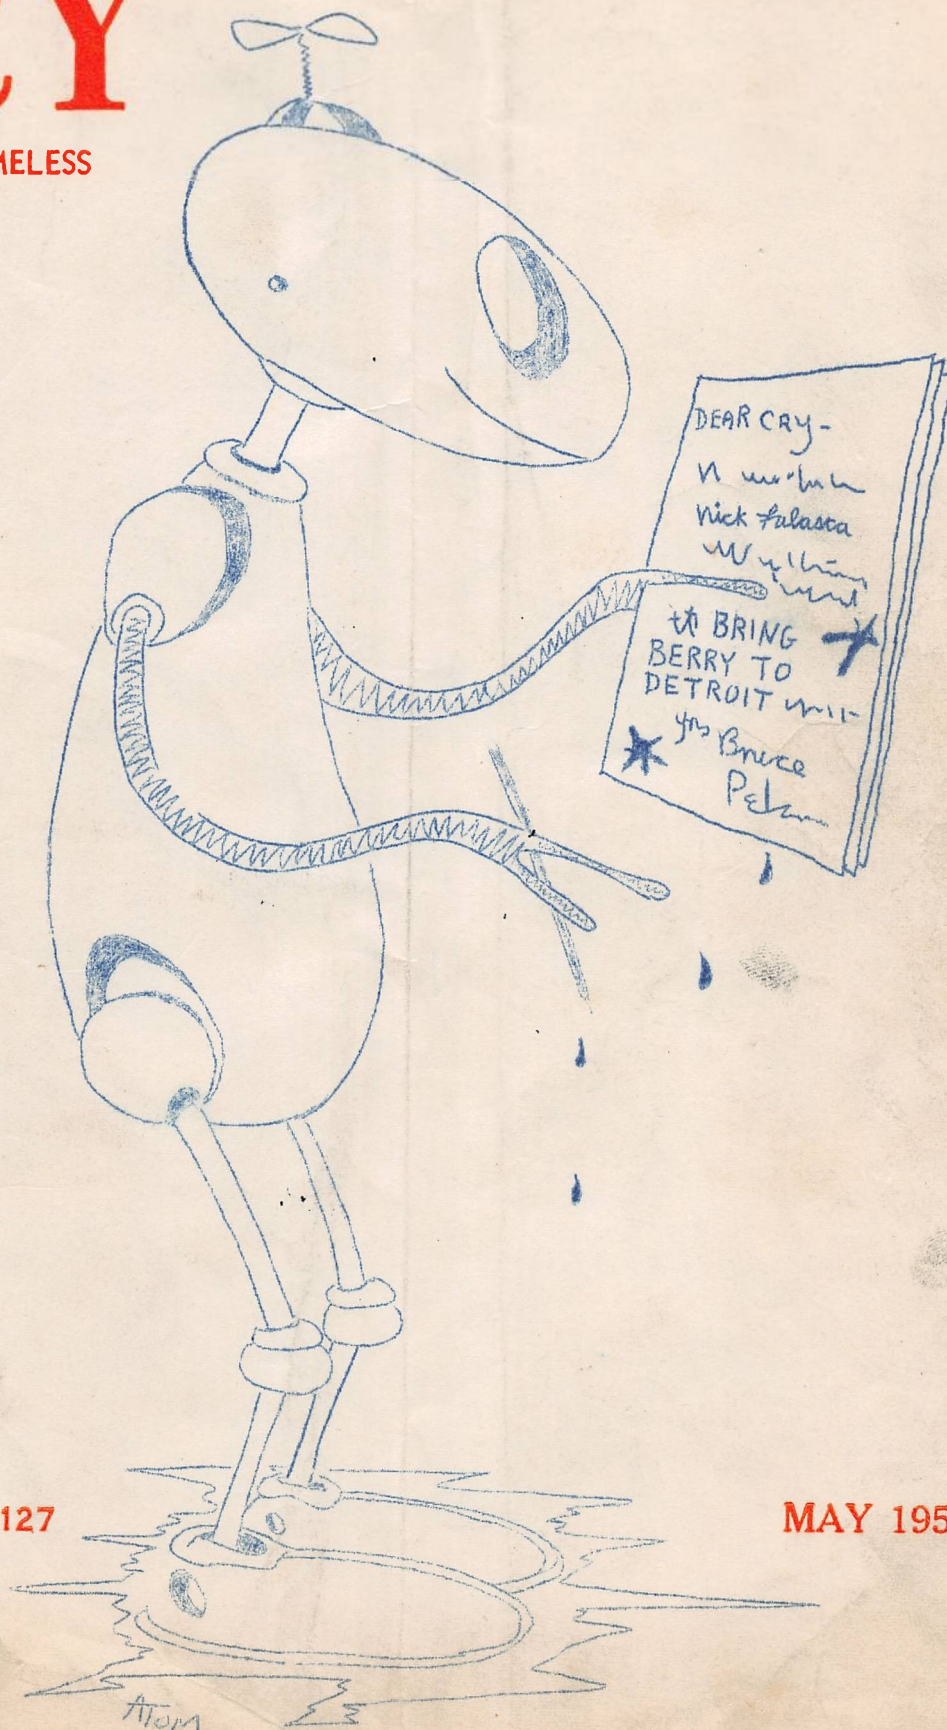 RY
MELESS
DEAR CRY-
Nick Falasca
BRING
BERRY TO
DETROIT
yrs Bruce
127
MAY 195
ATOM